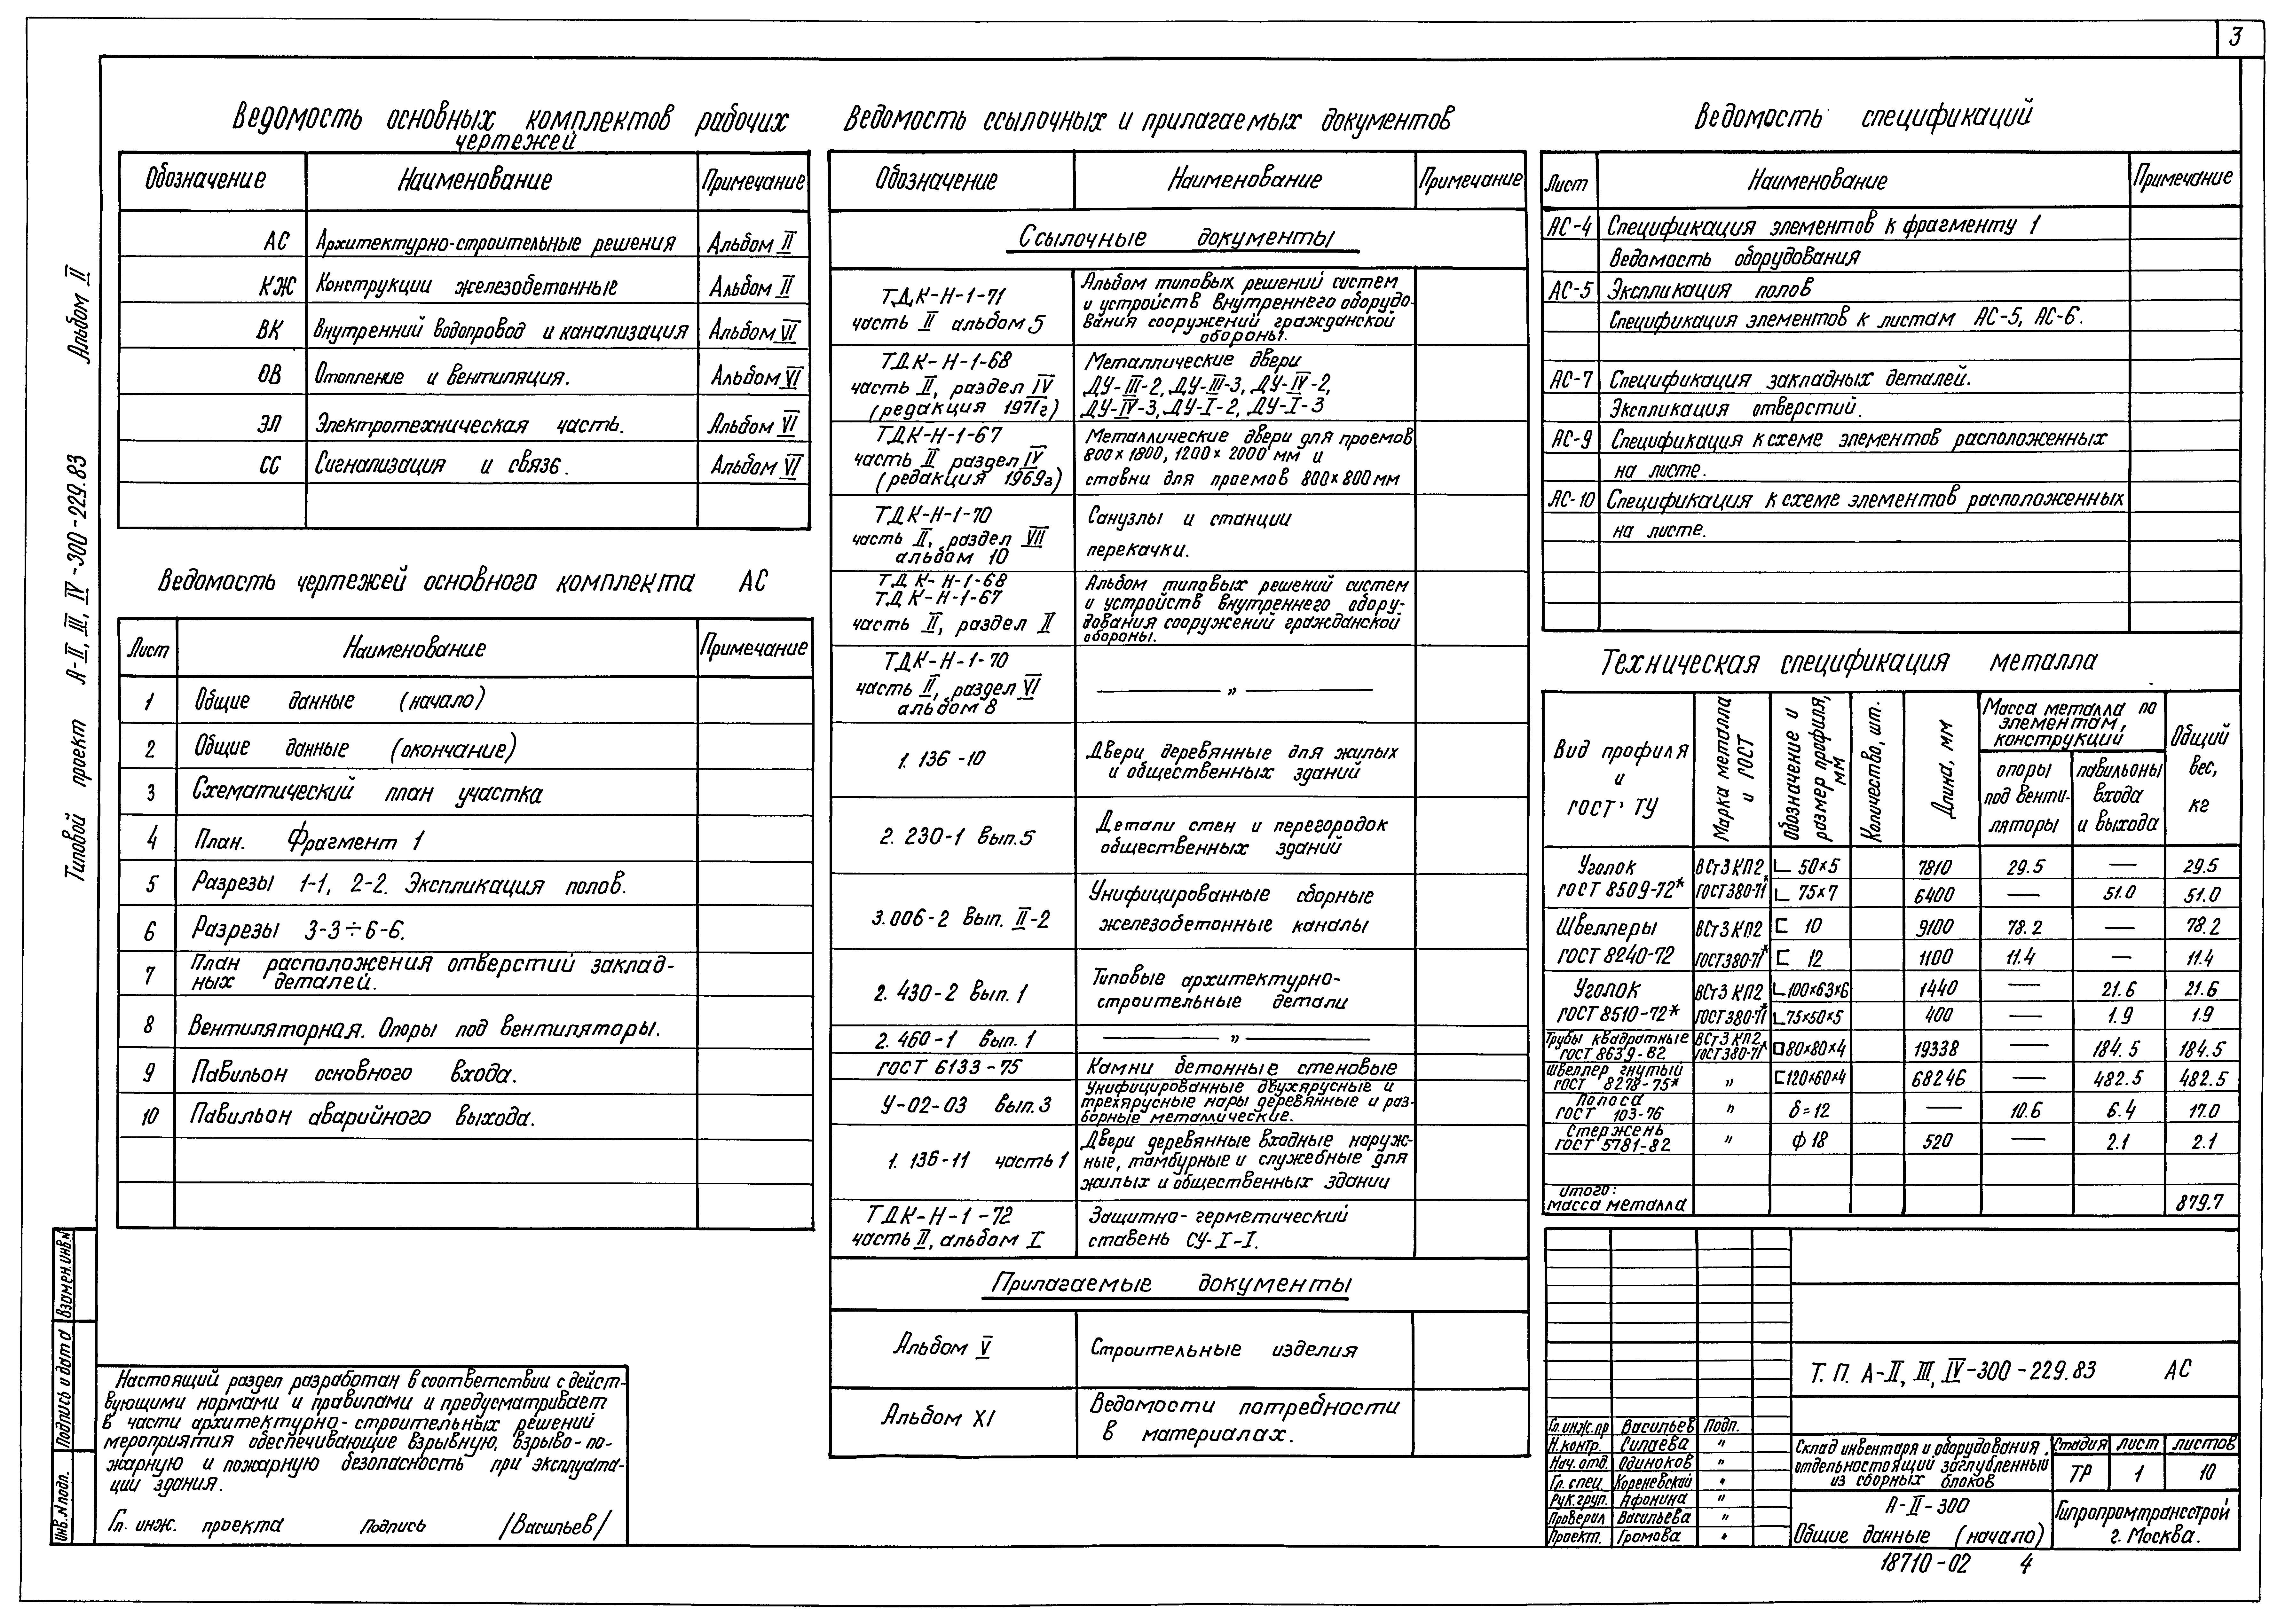 3
Альбом II
Типовой проект А-II, III, IV -300-229.83
Взамен.инв.N
Подпись и дата
Инв.N подл.
Ведомость основных комплектов рабочих
чертежей
Обозначение Наименование Примечание
АС Архитектурно-строительные решения Альбом II
КЖ Конструкции железобетонные Альбом II
ВК Внутренний водопровод и канализация Альбом VI
ОВ Отопление и вентиляция. Альбом VI
ЭЛ Электротехническая часть. Альбом VI
СС Сигнализация и связь. Альбом VI
Ведомость чертежей основного комплекта АС
Лист Наименование Примечание
1 Общие данные (начало)
2 Общие данные (окончание)
3 Схематический план участка
4 План. Фрагмент 1
5 Разрезы 1-1, 2-2. Экспликация полов.
6 Разрезы 3-3÷6-6.
7 План расположения отверстий заклад-
ных деталей.
8 Вентиляторная. Опоры под вентиляторы.
9 Павильон основного входа.
10 Павильон аварийного выхода.
Настоящий раздел разработан в соответствии с дейст-
вующими нормами и правилами и предусматривает
в части архитектурно-строительных решений
мероприятия обеспечивающие взрывную, взрыво-по-
жарную и пожарную безопасность при эксплуата-
ции здания.
Гл. инж. проекта Подпись /Васильев/
Ведомость ссылочных и прилагаемых документов
Обозначение Наименование Примечание
Ссылочные документы
ТДК-Н-1-71
часть II альбом 5
Альбом типовых решений систем
и устройств внутреннего оборудо-
вания сооружений гражданской
обороны.
ТДК-Н-1-68
часть II, раздел IV
(редакция 1971г)
Металлические двери
ДУ-III-2, ДУ-III-3, ДУ-IV-2,
ДУ-IV-3, ДУ-I-2, ДУ-I-3
ТДК-Н-1-67
часть II раздел IV
(редакция 1969г)
Металлические двери для проемов
800×1800, 1200×2000 мм и
ставни для проемов 800×800 мм
ТДК-Н-1-70
часть II, раздел VII
альбом 10
Санузлы и станции
перекачки.
ТДК-Н-1-68
ТДК-Н-1-67
часть II, раздел II
Альбом типовых решений систем
и устройств внутреннего обору-
дования сооружений гражданской
обороны.
ТДК-Н-1-70
часть II, раздел VI
альбом 8
— " —
1. 136-10
Двери деревянные для жилых
и общественных зданий
2. 230-1 Вып.5
Детали стен и перегородок
общественных зданий
3.006-2 Вып. II-2
Унифицированные сборные
железобетонные каналы
2. 430-2 Вып. 1
Типовые архитектурно-
строительные детали
2. 460-1 Вып. 1 — " —
ГОСТ 6133-75 Камни бетонные стеновые
У-02-03 Вып.3
Унифицированные двухярусные и
трехярусные нары деревянные и раз-
борные металлические.
1. 136-11 часть 1
Двери деревянные входные наруж-
ные, тамбурные и служебные для
жилых и общественных здании
ТДК-Н-1-72
часть II, альбом I
Защитно-герметический
ставень СУ-I-I.
Прилагаемые документы
Альбом V Строительные изделия
Альбом XI
Ведомости потребности
в материалах.
Ведомость спецификаций
Лист Наименование Примечание
АС-4 Спецификация элементов к фрагменту 1
Ведомость оборудования
АС-5 Экспликация полов
Спецификация элементов к листам АС-5, АС-6.
АС-7 Спецификация закладных деталей.
Экспликация отверстий.
АС-9 Спецификация к схеме элементов расположенных
на листе.
АС-10 Спецификация к схеме элементов расположенных
на листе.
Техническая спецификация металла
Вид профиля
и
ГОСТ, ТУ
Марка металла
и ГОСТ
Обозначение и
размер профиля,
мм
Количество, шт.
Длина, мм
Масса металла по
элементам,
конструкций
опоры
под венти-
ляторы
павильоны
входа
и выхода
Общий
вес,
кг
Уголок ВСт3КП2 ∟ 50×5 7810 29.5 — 29.5
ГОСТ 8509-72* ГОСТ380-71* ∟ 75×7 6400 — 51.0 51.0
Швеллеры ВСт3КП2 ⊏ 10 9100 78.2 — 78.2
ГОСТ 8240-72 ГОСТ380-71* ⊏ 12 1100 11.4 — 11.4
Уголок ВСт3КП2 ∟100×63×6 1440 — 21.6 21.6
ГОСТ 8510-72* ГОСТ380-71* ∟75×50×5 400 — 1.9 1.9
Трубы квадратные ВСт3КП2
ГОСТ 8639-82 ГОСТ380-71* □80×80×4 19338 — 184.5 184.5
Швеллер гнутый
ГОСТ 8278-75* " ⊏120×60×4 68246 — 482.5 482.5
Полоса
ГОСТ 103-76 " δ=12 — 10.6 6.4 17.0
Стержень
ГОСТ 5781-82 " ф 18 520 — 2.1 2.1
Итого:
масса металла 879.7
Т. П. А-II, III, IV-300-229.83 АС
Гл.инж.пр Васильев Подп.
Н.контр. Силаева "
Нач.отд. Одиноков "
Гл.спец. Кореневский "
Рук.груп. Афонина "
Проверил Васильева "
Проект. Громова "
Склад инвентаря и оборудования,
отдельностоящий заглубленный
из сборных блоков
Стадия лист листов
ТР 1 10
А-II-300
Общие данные (начало)
Гипропромтрансстрой
г. Москва.
18710-02 4